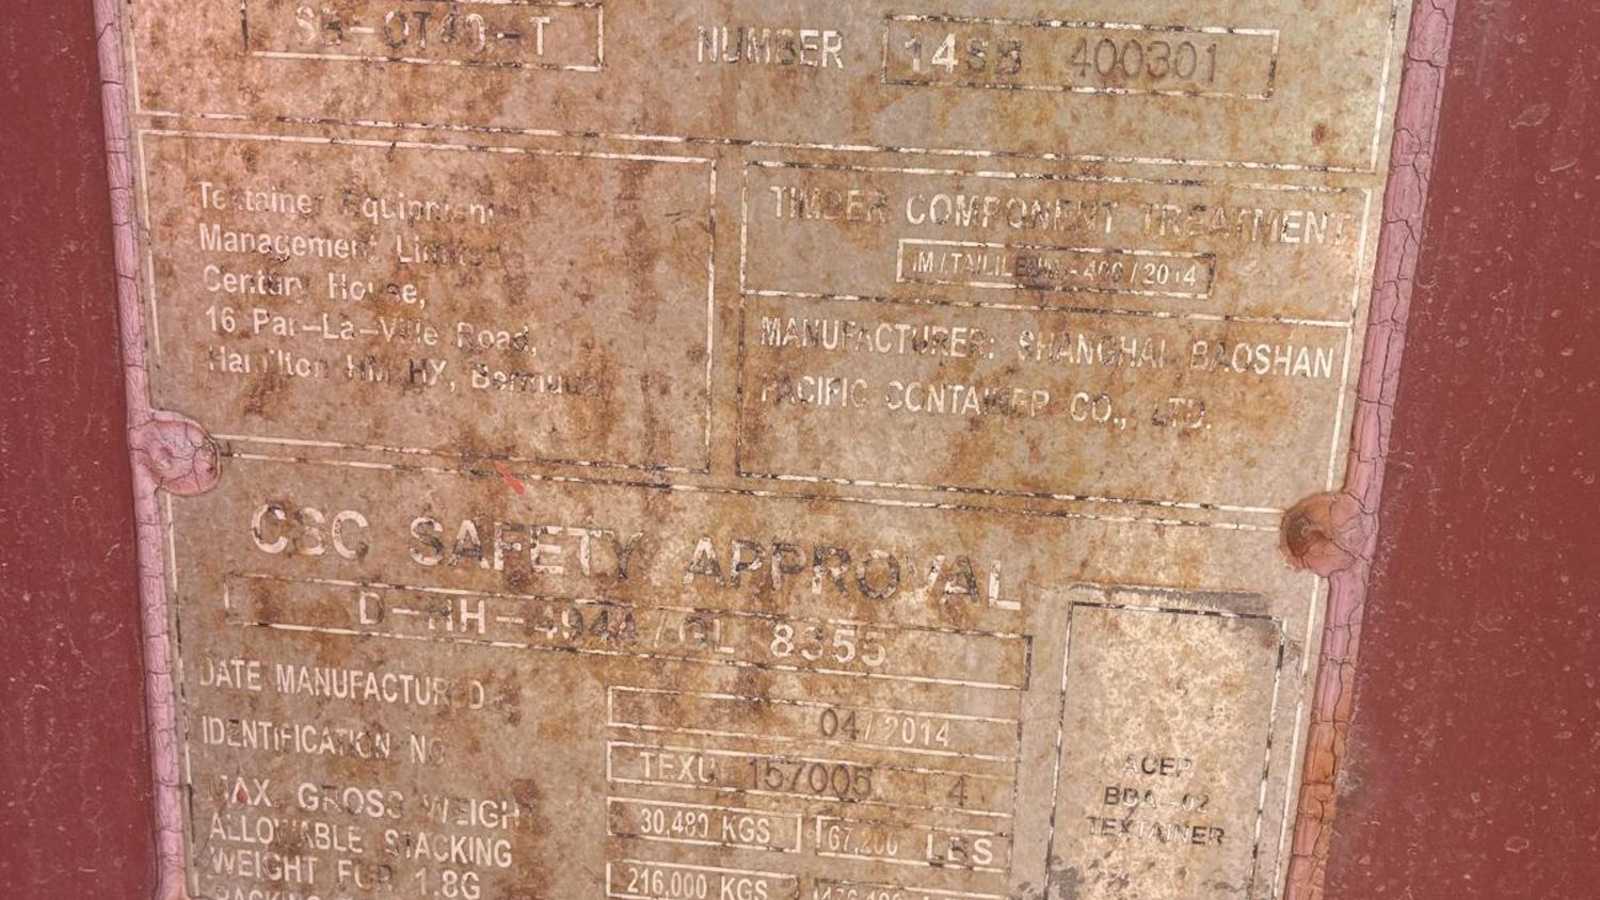 SB-OT40-T NUMBER 14SB 400301
Textainer Equipment
Management Limited
Century House,
16 Par-La-Ville Road,
Hamilton HM HX, Bermuda
TIMBER COMPONENT TREATMENT
/2014
MANUFACTURER: SHANGHAI BAOSHAN
PACIFIC CONTAINER CO., LTD.
CSC SAFETY APPROVAL
D-HH-4944/GL 8355
DATE MANUFACTURED 04/2014
IDENTIFICATION NO TEXU 157005 4
MAX. GROSS WEIGHT 30,480 KGS 67,200 LBS
ALLOWABLE STACKING
WEIGHT FOR 1.8G 216,000 KGS
ACEP
BBA-02
TEXTAINER